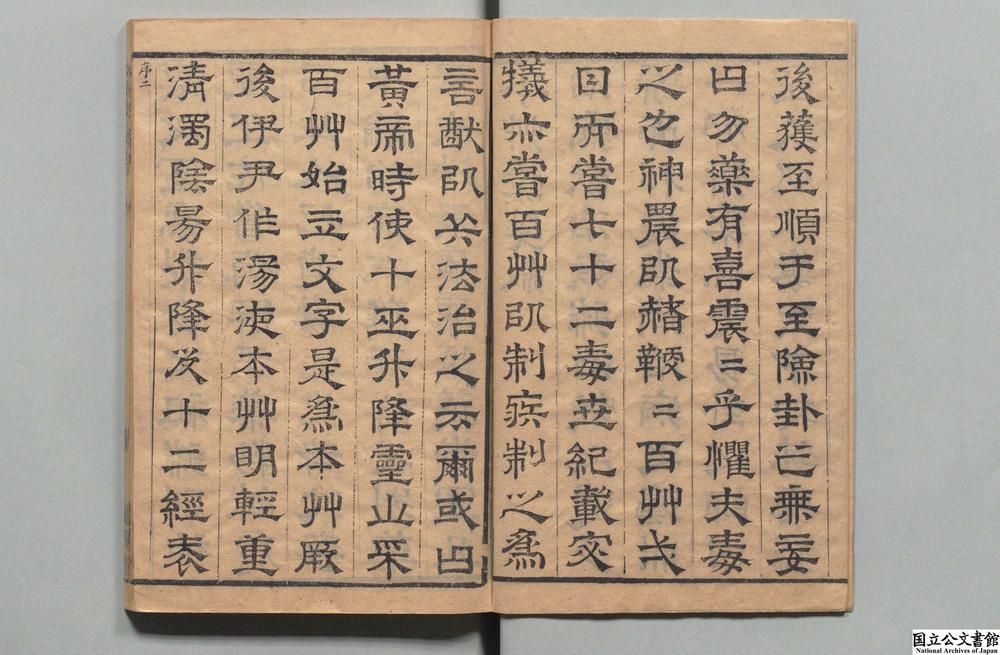 後蒦至順于至險卦亡無妄
曰勿藥有喜震二乎懼夫毒
之也神農㠯赭鞭二百艸弍
日而嘗七十二毒世紀載宓
犧亦嘗百艸㠯制疾制之爲
言猷㠯兵法治之云爾或曰
黃帝時使十巫升降靈山采
百艸始立文字是爲本艸厥
後伊尹作湯液本艸明輕重
淸濁陰昜升降及十二經表
序二
国立公文書館
National Archives of Japan